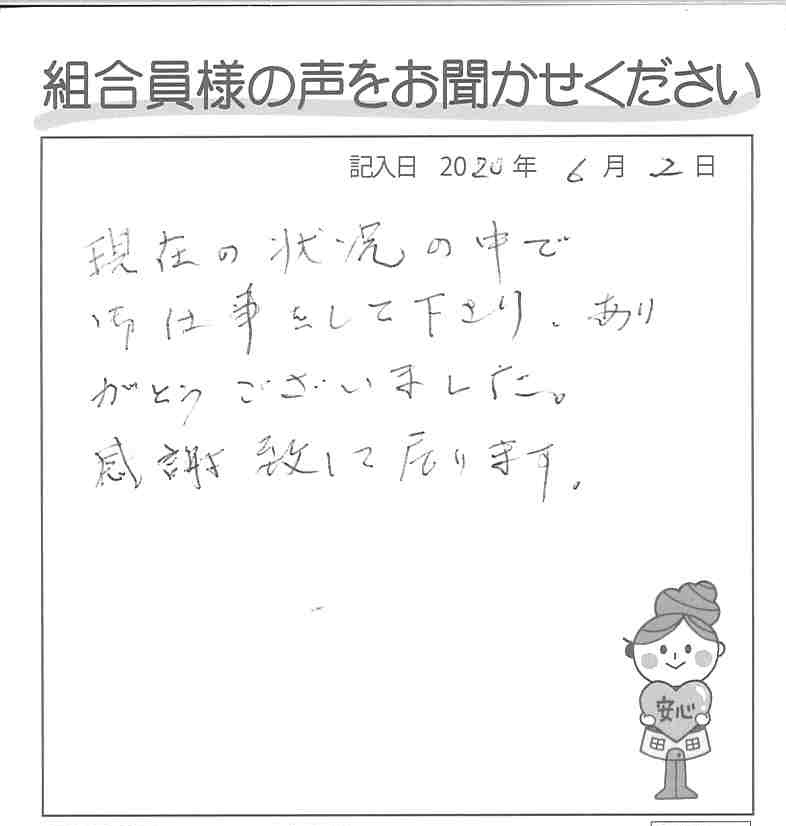 組合員様の声をお聞かせください
記入日 2020年 6月 2日
現在の状況の中で
御仕事をして下さり、あり
がとうございました。
感謝致して居ります。
安心